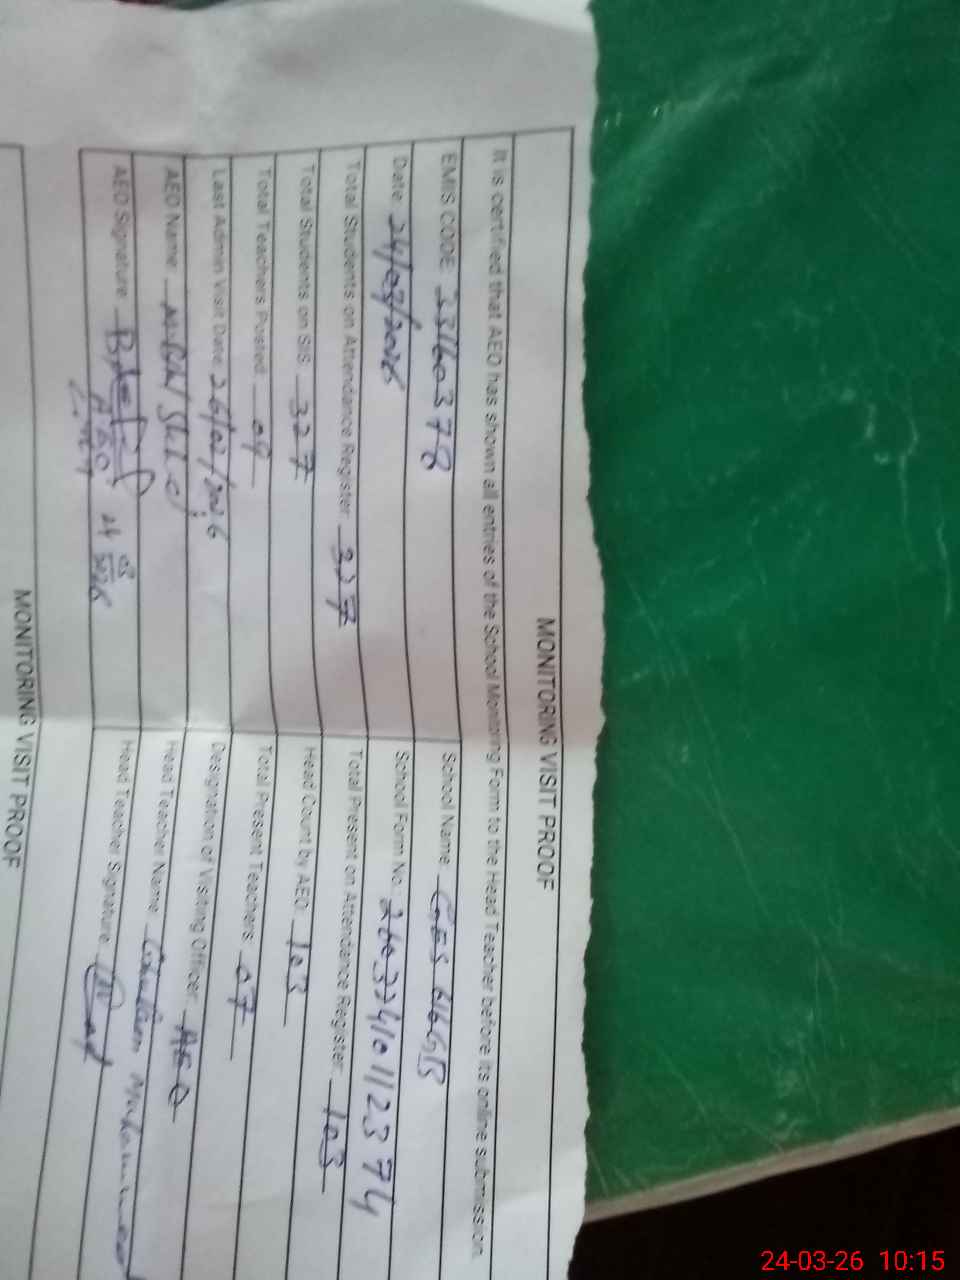 MONITORING VISIT PROOF
It is certified that AEO has shown all entries of the School Monitoring Form to the Head Teacher before its online submission.
EMIS CODE: 33160378 School Name: GES 616GB
Date: 24/03/2026 School Form No. 260332410112374
Total Students on Attendance Register: 327 Total Present on Attendance Register: 103
Total Students on SIS: 327 Head Count by AEO: 103
Total Teachers Posted: 09 Total Present Teachers: 07
Last Admin Visit Date: 26/02/2026 Designation of Visiting Officer: AEO
AEO Name: Head Teacher Name: Ghulam Muhammad
AEO Signature: Head Teacher Signature:
AEO
24 03 2026
MONITORING VISIT PROOF
24-03-26 10:15